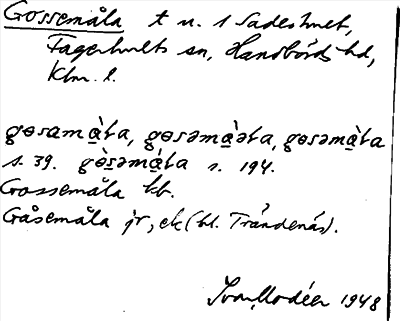 Gossemåla t n. 1 Sadeshult,
Fagerhults sn, Handbörds hd,
Klm. l.
gɵsamà̱ta, gɵsəmà̱əta, gɵsəmà̱ta
s. 39. gɵ̀səmà̱ta s. 194.
Gossemåla kb.
Gåsemåla jr, ek (bl. Trändenäs).
Ivar Modéer 1948